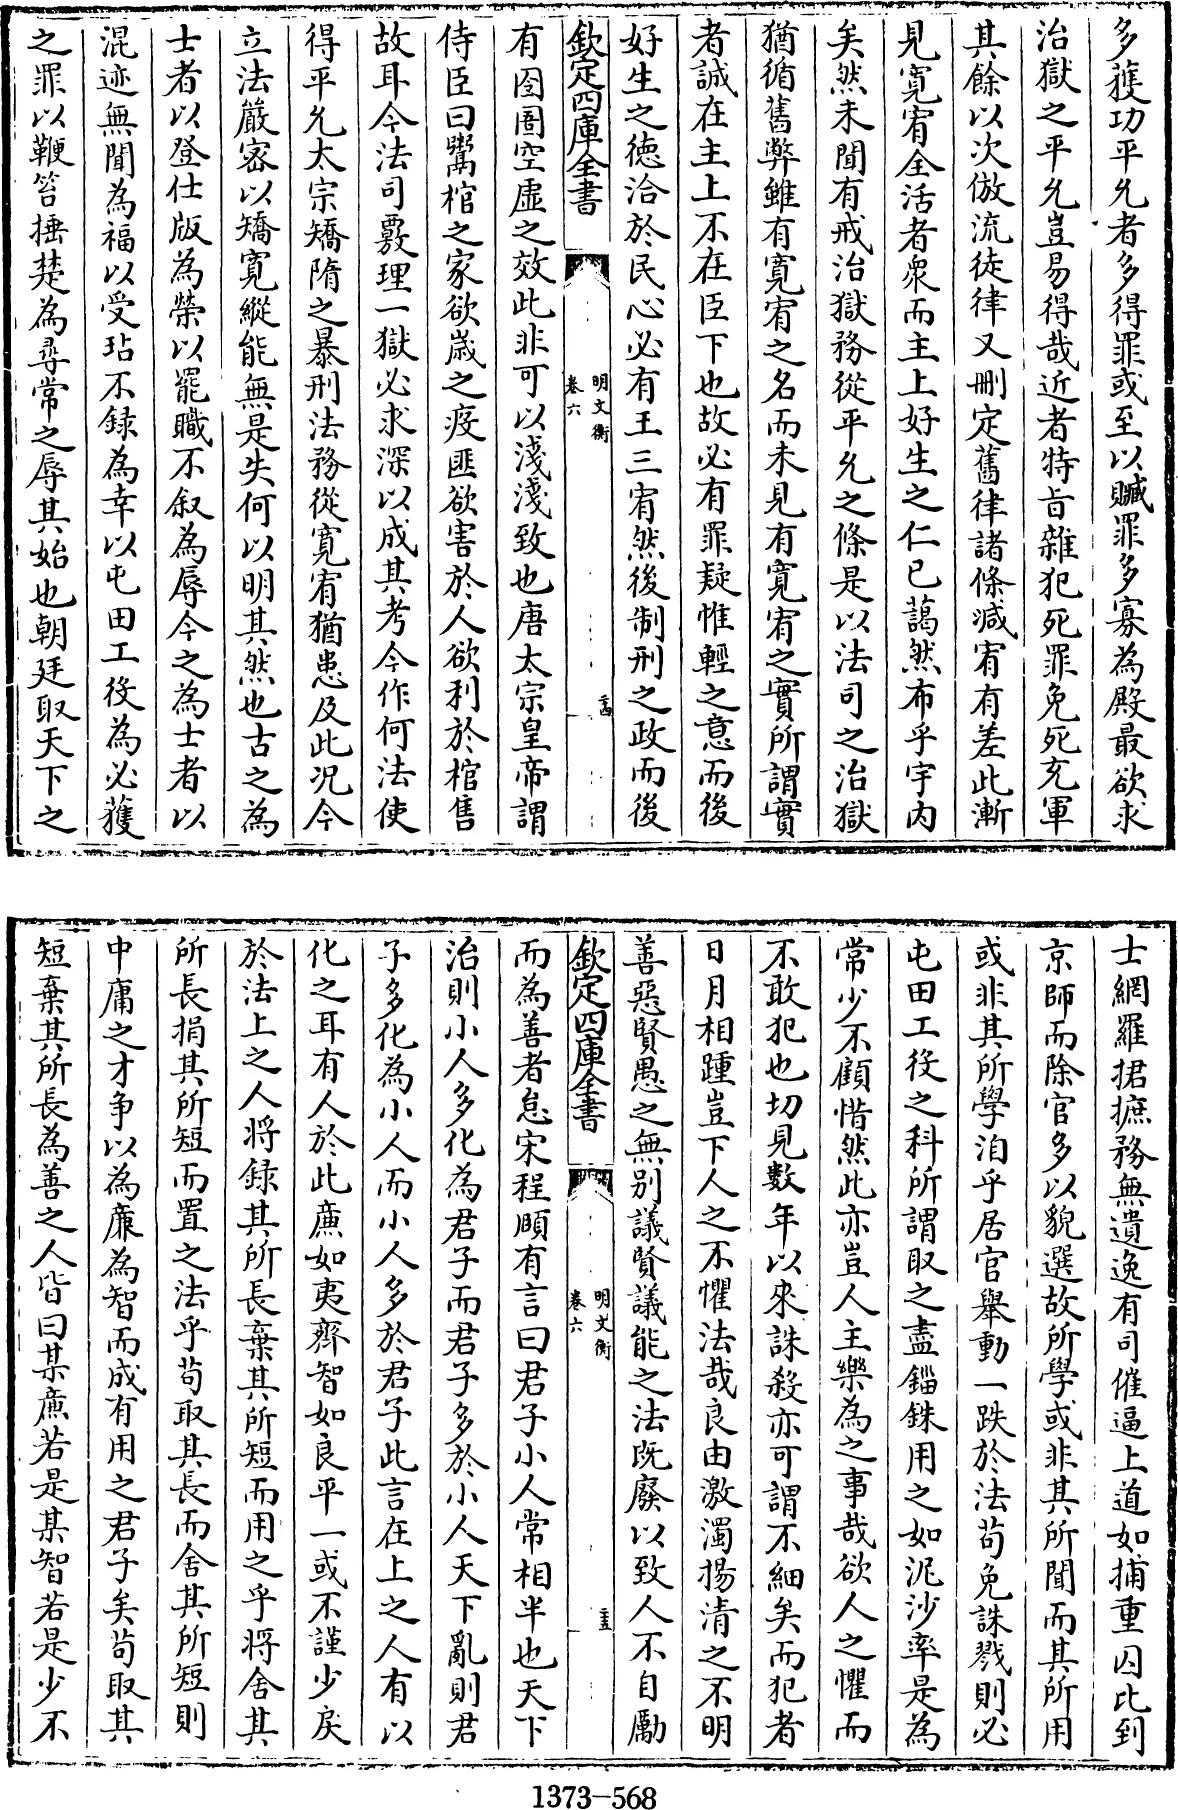 多獲功平允者多得罪或至以贓罪多寡為殿最欲求
治獄之平允豈易得哉近者特旨雜犯死罪免死充軍
其餘以次倣流徒律又刪定舊律諸條減宥有差此漸
見寛宥全活者衆而主上好生之仁已藹然布乎宇内
矣然未聞有戒治獄務從平允之條是以法司之治獄
猶循舊弊雖有寛宥之名而未見有寛宥之實所謂實
者誠在主上不在臣下也故必有罪疑惟輕之意而後
好生之徳洽於民心必有王三宥然後制刑之政而後
欽定四庫全書
明文衡
卷六
二十四
有囹圄空虛之效此非可以淺淺致也唐太宗皇帝謂
侍臣曰鬻棺之家欲嵗之疫匪欲害於人欲利於棺售
故耳今法司覈理一獄必求深以成其考今作何法使
得平允太宗矯隋之暴刑法務從寛宥猶患及此况今
立法嚴宻以矯寛縱能無是失何以明其然也古之為
士者以登仕版為榮以罷職不叙為辱今之為士者以
混迹無聞為福以受玷不録為幸以屯田工役為必獲
之罪以鞭笞捶楚為尋常之辱其始也朝廷取天下之
士網羅捃摭務無遺逸有司催逼上道如捕重囚比到
京師而除官多以貌選故所學或非其所聞而其所用
或非其所學洎乎居官舉動一跌於法苟免誅戮則必
屯田工役之科所謂取之盡錙銖用之如泥沙率是為
常少不顧惜然此亦豈人主樂為之事哉欲人之懼而
不敢犯也切見數年以來誅殺亦可謂不細矣而犯者
日月相踵豈下人之不懼法哉良由激濁揚清之不明
善惡賢愚之無别議賢議能之法既廢以致人不自勵
欽定四庫全書
明文衡
卷六
二十五
而為善者怠宋程頤有言曰君子小人常相半也天下
治則小人多化為君子而君子多於小人天下亂則君
子多化為小人而小人多於君子此言在上之人有以
化之耳有人於此亷如夷齊智如良平一或不謹少戾
於法上之人將録其所長棄其所短而用之乎將舍其
所長捐其所短而置之法乎苟取其長而舍其所短則
中庸之才争以為亷為智而成有用之君子矣苟取其
短棄其所長為善之人皆曰某亷若是某智若是少不
1373-568